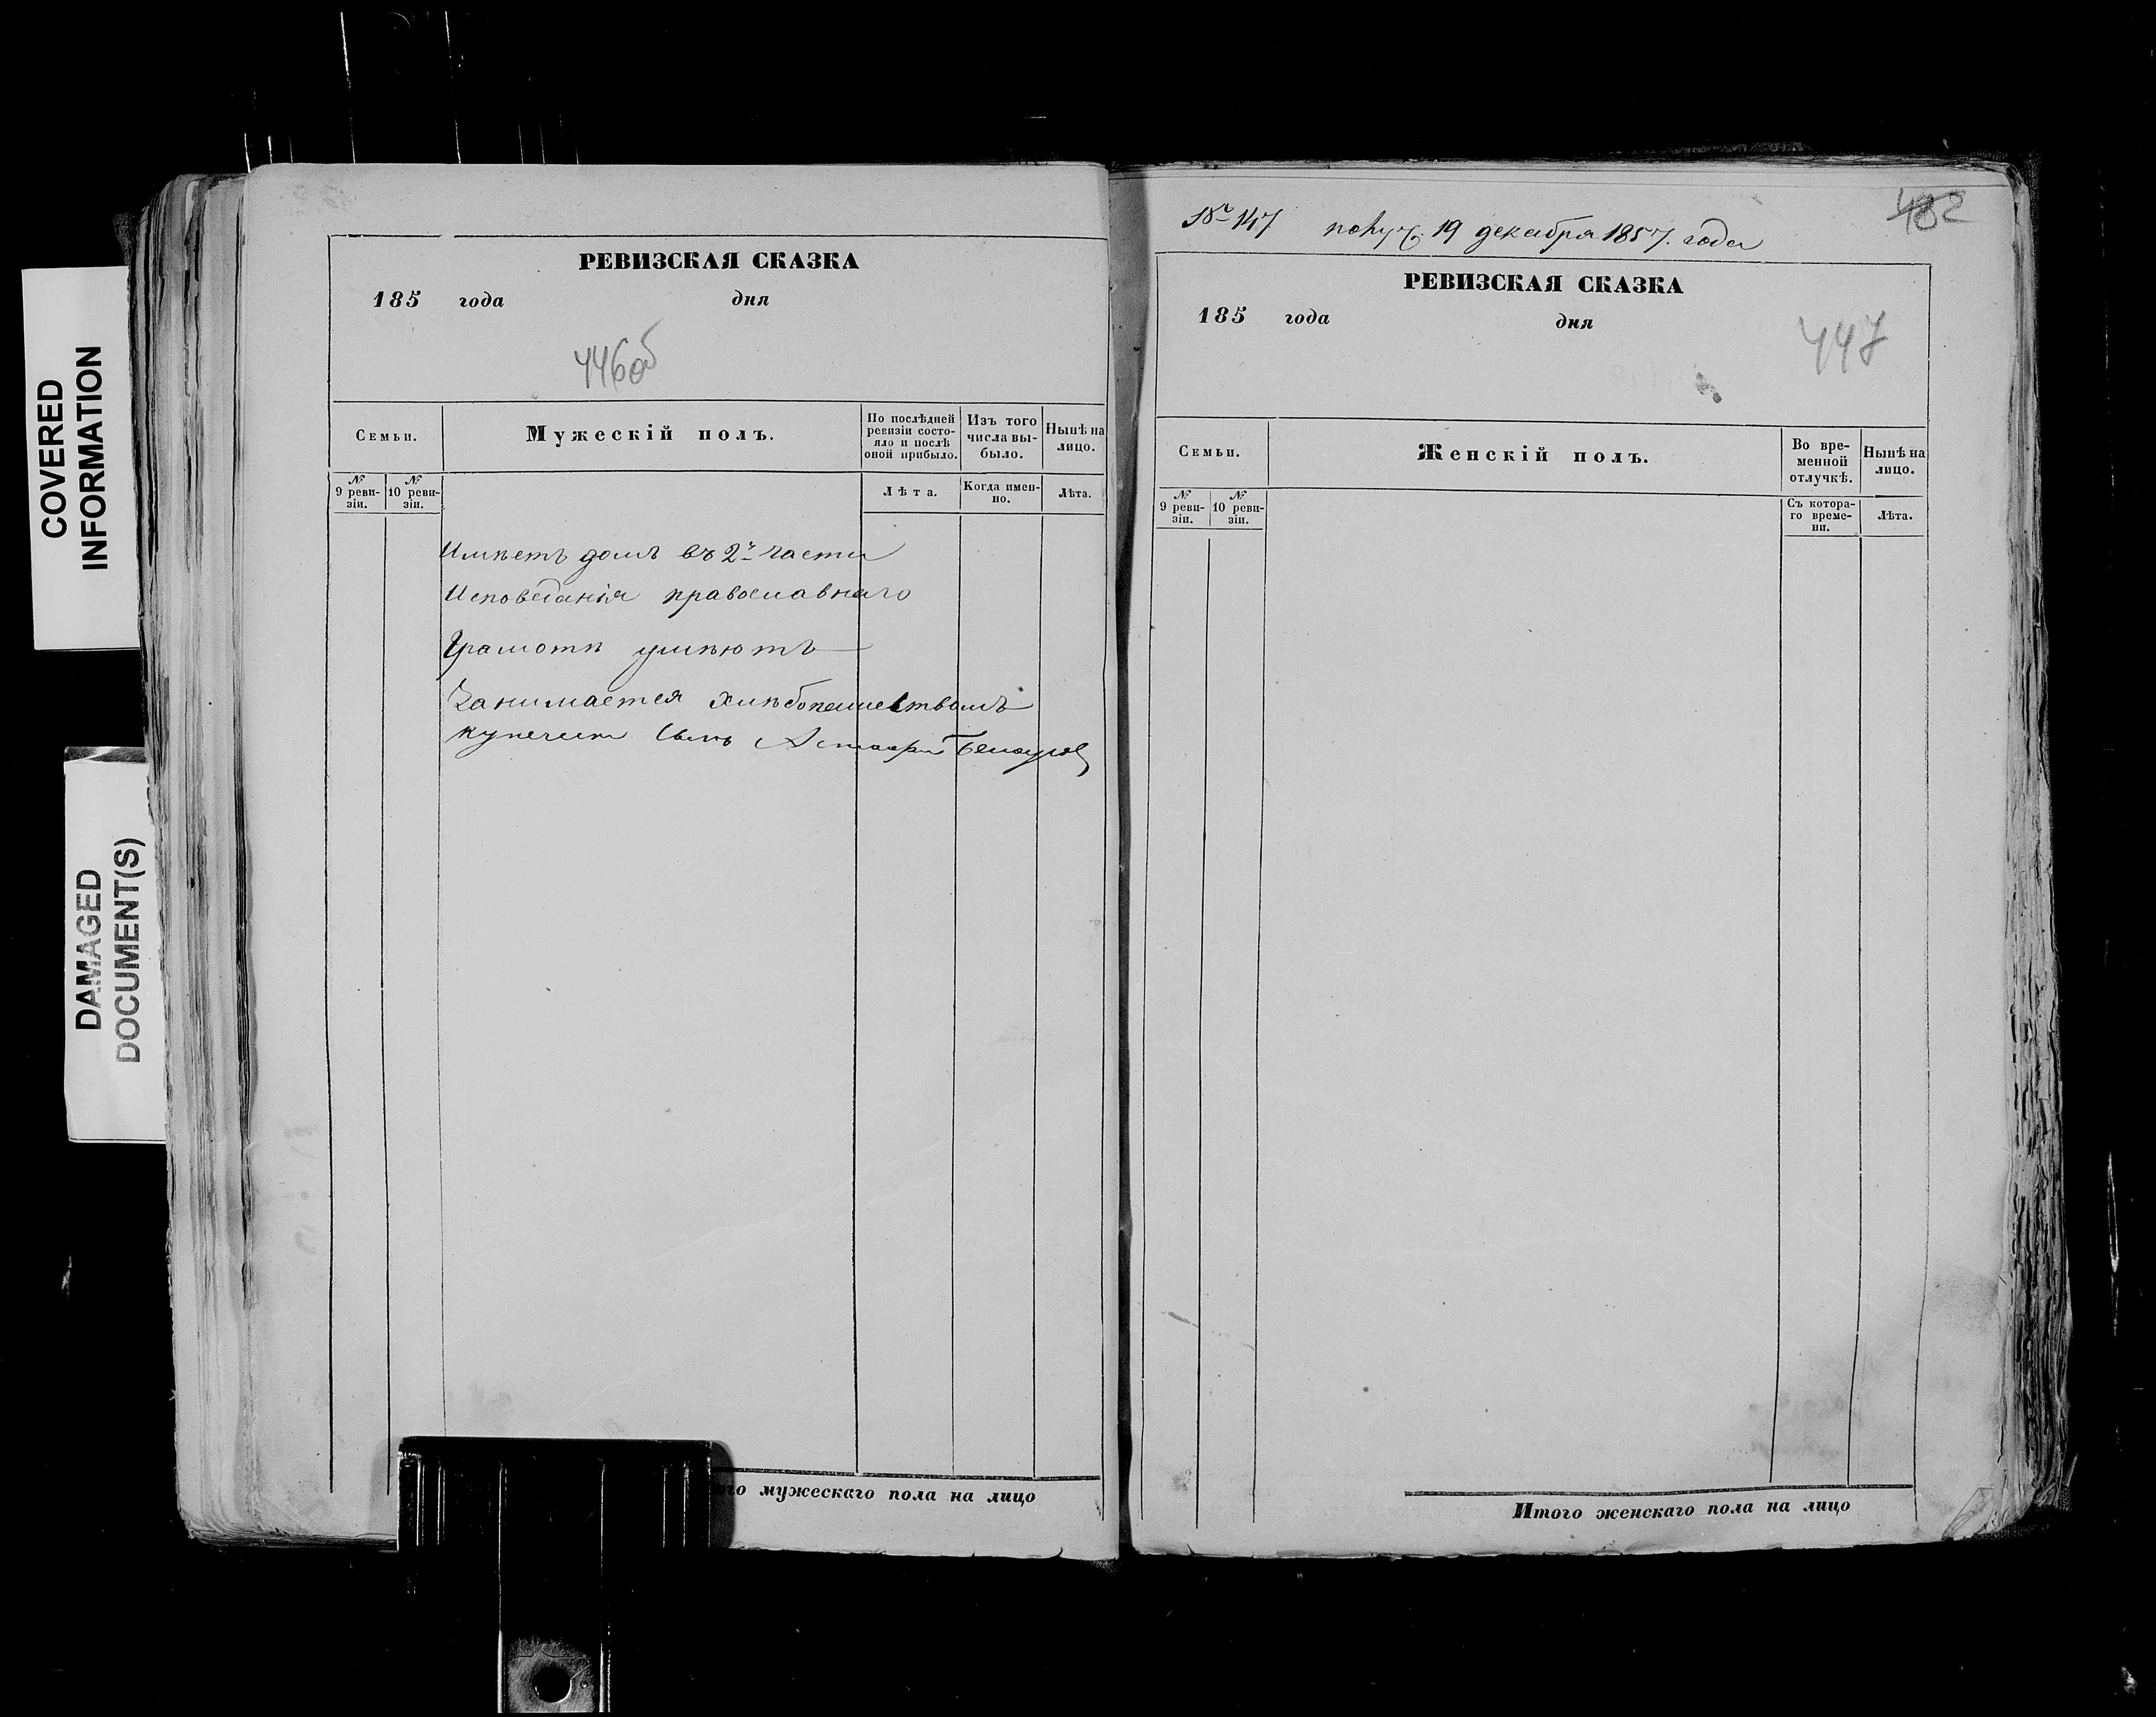 COVERED
INFORMATION
DAMAGED
DOCUMENT(S)
РЕВИЗСКАЯ СКАЗКА
185 года дня
446об
Семьи.
Мужескій полъ.
По послѣдней
ревизіи состо-
яло и послѣ
оной прибыло.
Изъ того
числа вы-
было.
Нынѣ на
лицо.
№
9 реви-
зіи.
№
10 реви-
зіи.
Лѣта.
Когда имен-
но.
Лѣта.
Имѣетъ домъ въ 2й части
Исповеданія православнаго
Грамотѣ умѣютъ
Занимается хлѣбопашествомъ
купечески сынъ
го мужескаго пола на лицо
№ 147 получ. 19 декабря 1857. года
482
РЕВИЗСКАЯ СКАЗКА
185 года дня
447
Семьи.
Женскій полъ.
Во вре-
менной
отлучкѣ.
Нынѣ на
лицо.
№
9 реви-
зіи.
№
10 реви-
зіи.
Съ котора-
го време-
ни.
Лѣта.
Итого женскаго пола на лицо